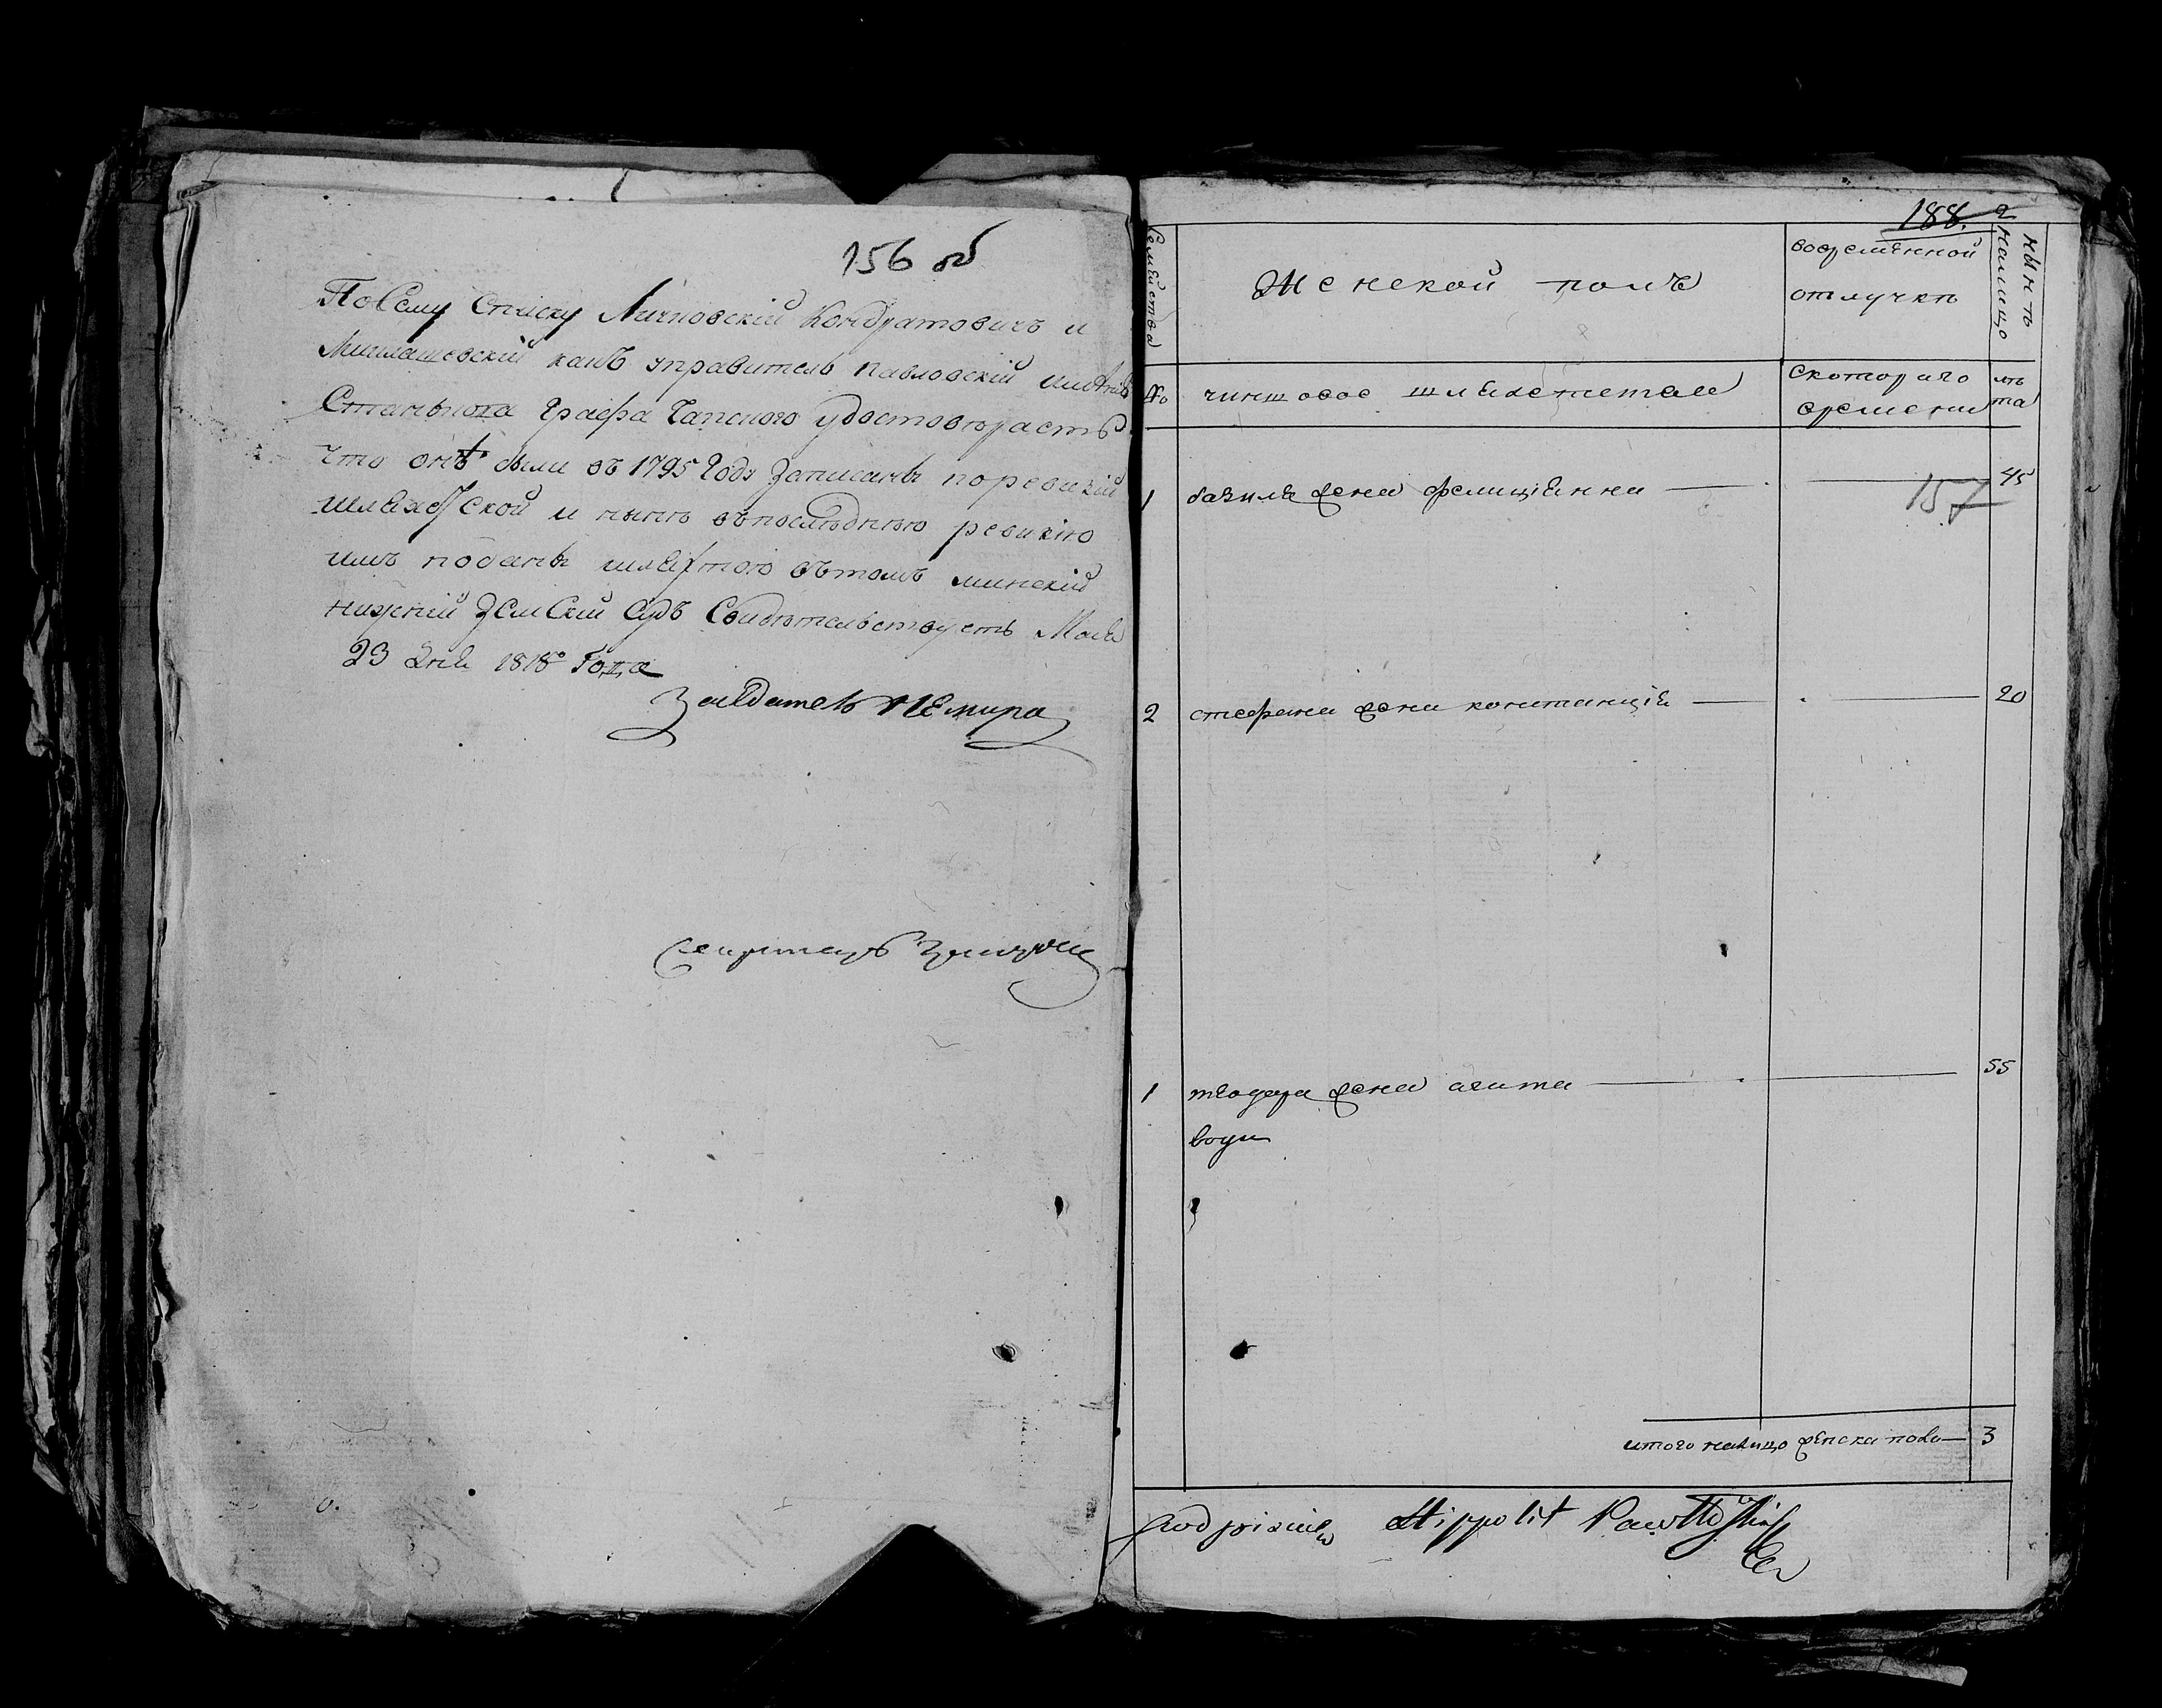 156 об
По Сему Списку Личновский Кондратовичъ и
Милашевский какъ управитель павловский имения
Станьковa Графа Чапского удостоверяетъ
что онѣ были въ 1795 Году Записаны поревизий
шляхетской и нынѣ въпослѣднюю ревизию
имъ поданы шляхтою въ томъ минский
нижний Земский Судъ Свидѣтельствуетъ Мая
23 дня 1818º Года
Заседатель Немира
Секретарь
188. 2
Семейства
Женской полъ
вовременной
отлучкѣ
нынѣ
налицо
№
чиншовое шляхетство
Скоторого
времени
лѣ
та
1 базиля жена фелициянна 45
157
2 стефана жена констанция 20
1 теодора жена агата 55
вдова
итого налицо женска пола 3
podpisuię Hippolit Pawłowski